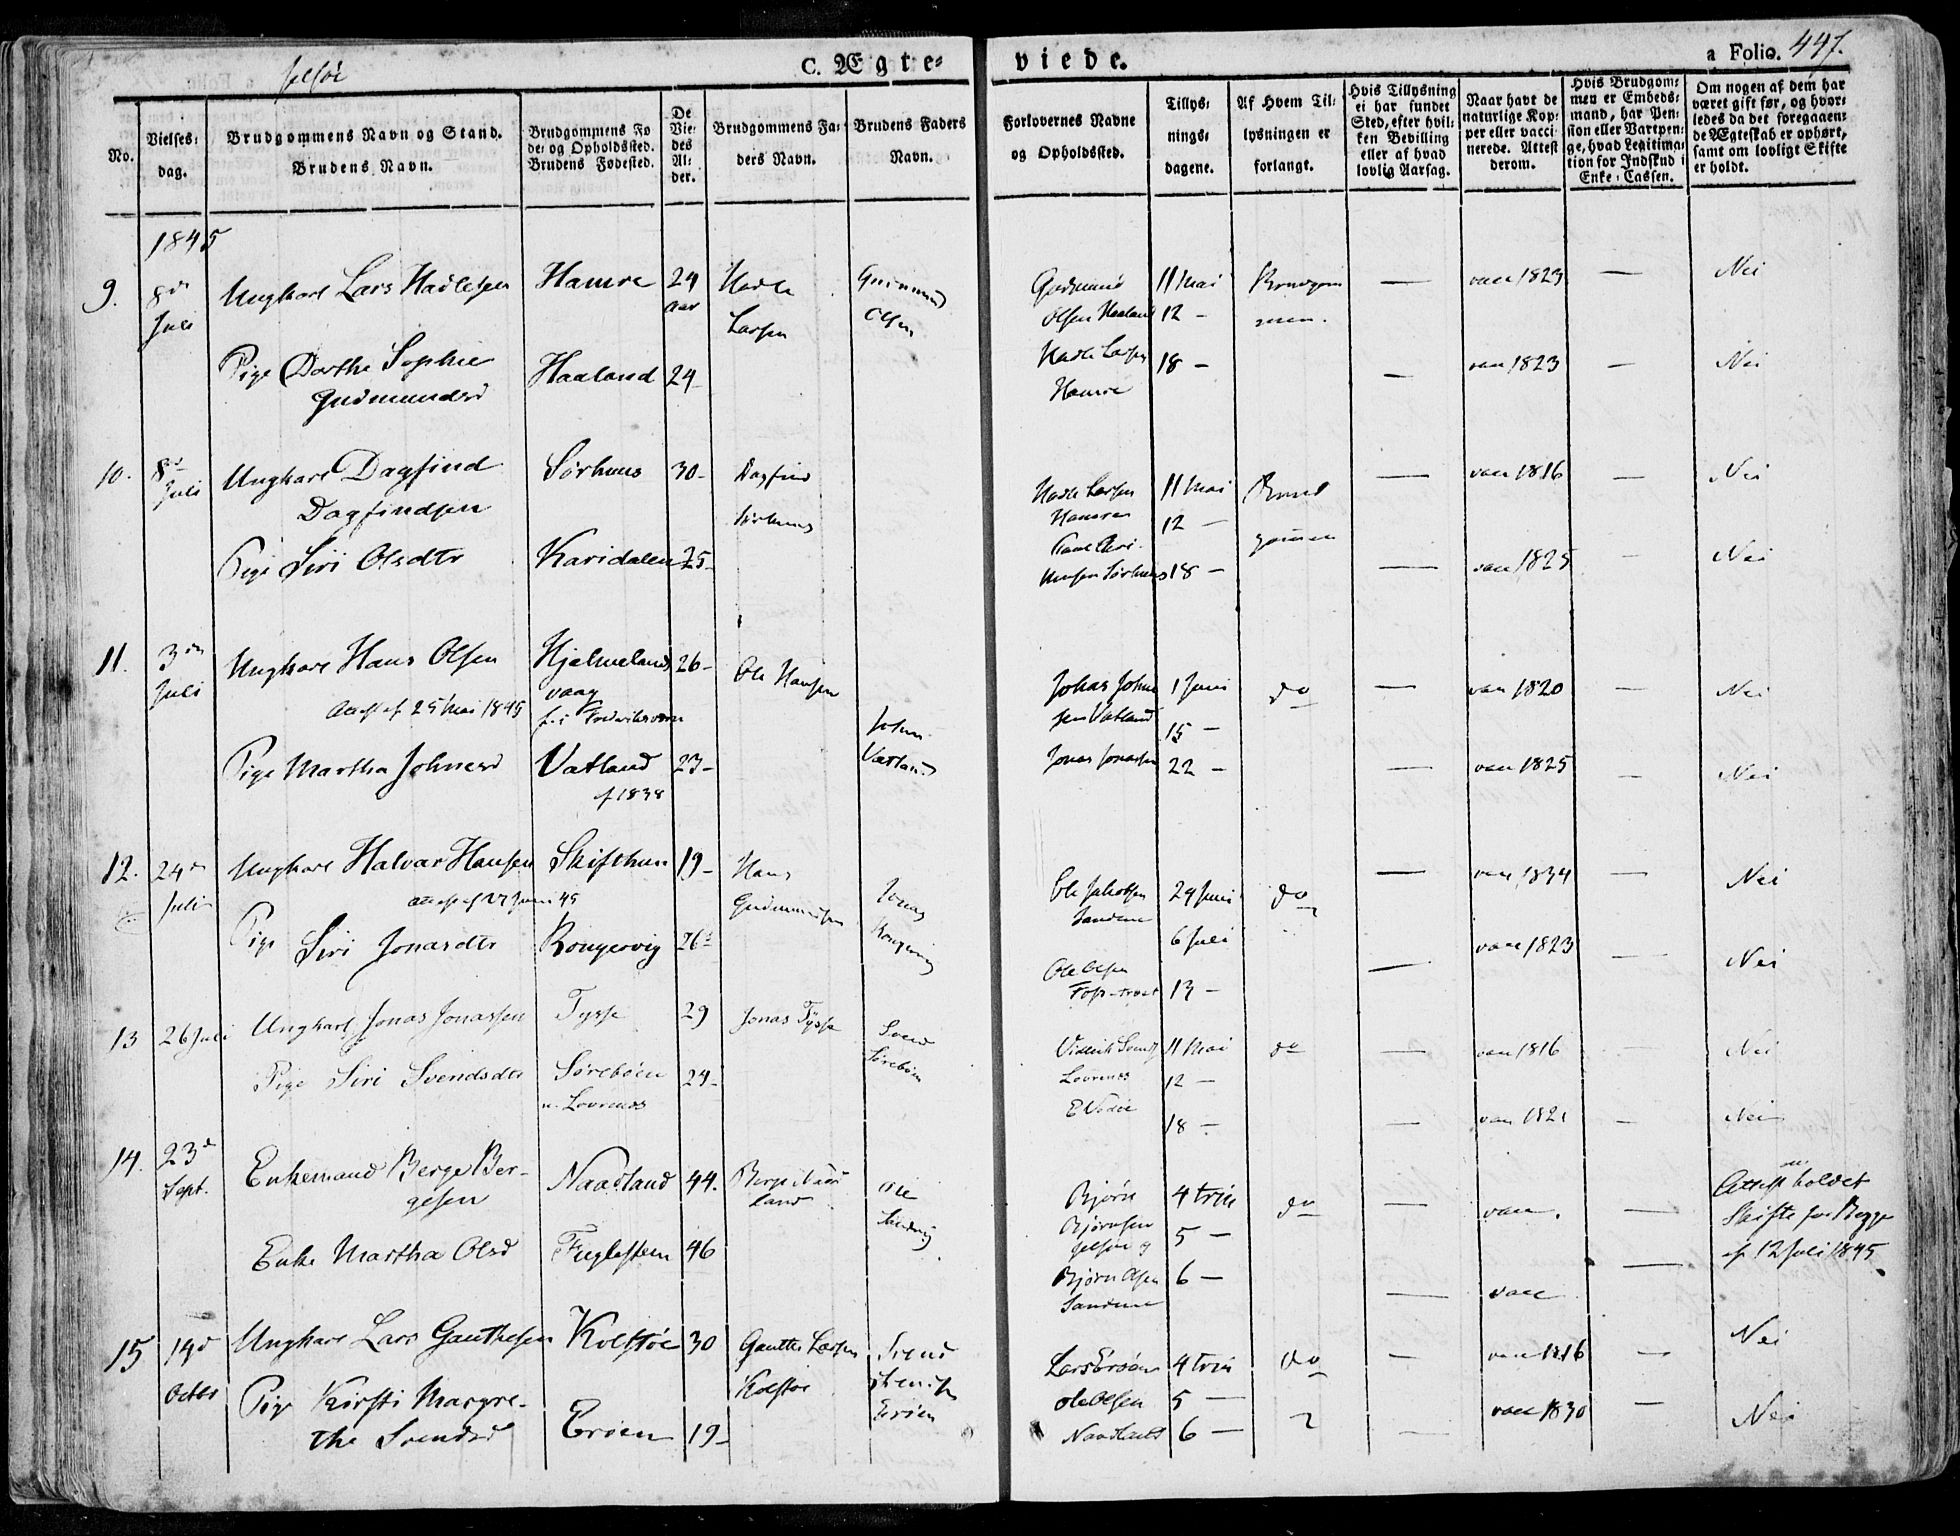 Jelsøe
C. Ægte-
viede.
a Folio. 447.
No.
Vielses-
dag.
Brudgommens Navn og Stand.
Brudens Navn.
Brudgommens Fø
de- og Opholdssted.
Brudens Fødested.
De
Vie-
des
Al-
der.
Brudgommens Fa-
ders Navn.
Brudens Faders
Navn.
Forlovernes Navne
og Opholdssted.
Tillys-
nings-
dagene.
Af Hvem Til-
lysningen er
forlangt.
Hvis Tillysning
ei har fundet
Sted, efter hvil-
ken Bevilling
eller af hvad
lovlig Aarsag.
Naar havt de
naturlige Kop-
per eller vacci-
nerede. Attest
derom.
Hvis Brudgom-
men er Embeds-
mand, har Pen-
sion eller Vartpen-
ge, hvad Legitima-
tion for Indskud i
Enke-Cassen.
Om nogen af dem har
været gift før, og hvor-
ledes da det foregaaen-
de Ægteskab er ophørt,
samt om lovligt Skifte
er holdt.
1845
9. 8de Ungkarl Lars Hadlesen Hamre 24 Hadle Gudmund Gudmund 11 Mai Brudgom — vacc 1823 — Nei
Juli aar Larsen Olsen Olsen Haaland 12 – men.
Pige Dorthe Sophie Haaland 24 – Hadle Larsen 18 – — vacc 1823 — Nei
Gudmundsd Hamre
10. 8de Ungkarl Dagfind Sørhuus 30 – Dagfind Hadle Larsen 11 Mai Brud — vacc 1816 — Nei
Juli Dagfindsen Sørhuus Hamre 12 – gommen
Pige Siri Olsdtr Karidalen 25 – Sørhuus 18 – — vacc 1825 — Nei
11. 3die Ungkarl Hans Olsen Hjelmelands 26 – Ole Hansen Johas Johne 1 Juni do — vacc 1820 — Nei
Juli Attest af 25 Mai 1845 vaag sen Vatland 15 –
f. i Frederiksværn
Pige Martha Johnesd Vatland 23 – John Vatland Jonas Jonassen 22 – — vacc 1825 — Nei
f 1838
12. 24de Ungkarl Halvar Hansen Skifthun 19 – Hans Jonas Ole Jakobsen 29 Juni do — vacc 1834 — Nei
Juli Attest af 27 Juni 45 Gudmundsen Sandene
Pige Siri Jonasdtr Rongevig 26 – Rongevig 6 Juli — vacc 1823 — Nei
Ole Olsen 13 –
13 26 Juli Ungkarl Jonas Jonassen Tysse 29 Jonas Tysse Svend 11 Mai do — vacc 1816 — Nei
Pige Siri Svendsdtr Sørebøen 24 – Sørebøen 12 –
18 – — vacc 1821 — Nei
14. 23de Enkemand Berge Ber- Naadland 44. Berge Naad Ole Bjørn 4 trin do — vacc. — Attest om holdet
Sept. gesen land Bjørnsen 5 – Skifte for Begge
Enke Martha Olsd Fuglesteen 46 Jelsøe og 6 – — vacc — af 12 Juli 1845
Bjørn Olsen
Sandene
15 19de Ungkarl Lars Gauthesen Kolstøe 30 Gauthe Larsen Svend Lars Erøen 4 trin do — vacc 1816 — Nei
Octbr Kolstøe
Pige Kirsti Margre- Erøen 19 – Erøen Ole Olsen 5 – vacc 1830 — Nei
the Svendsd Naadland 6 –